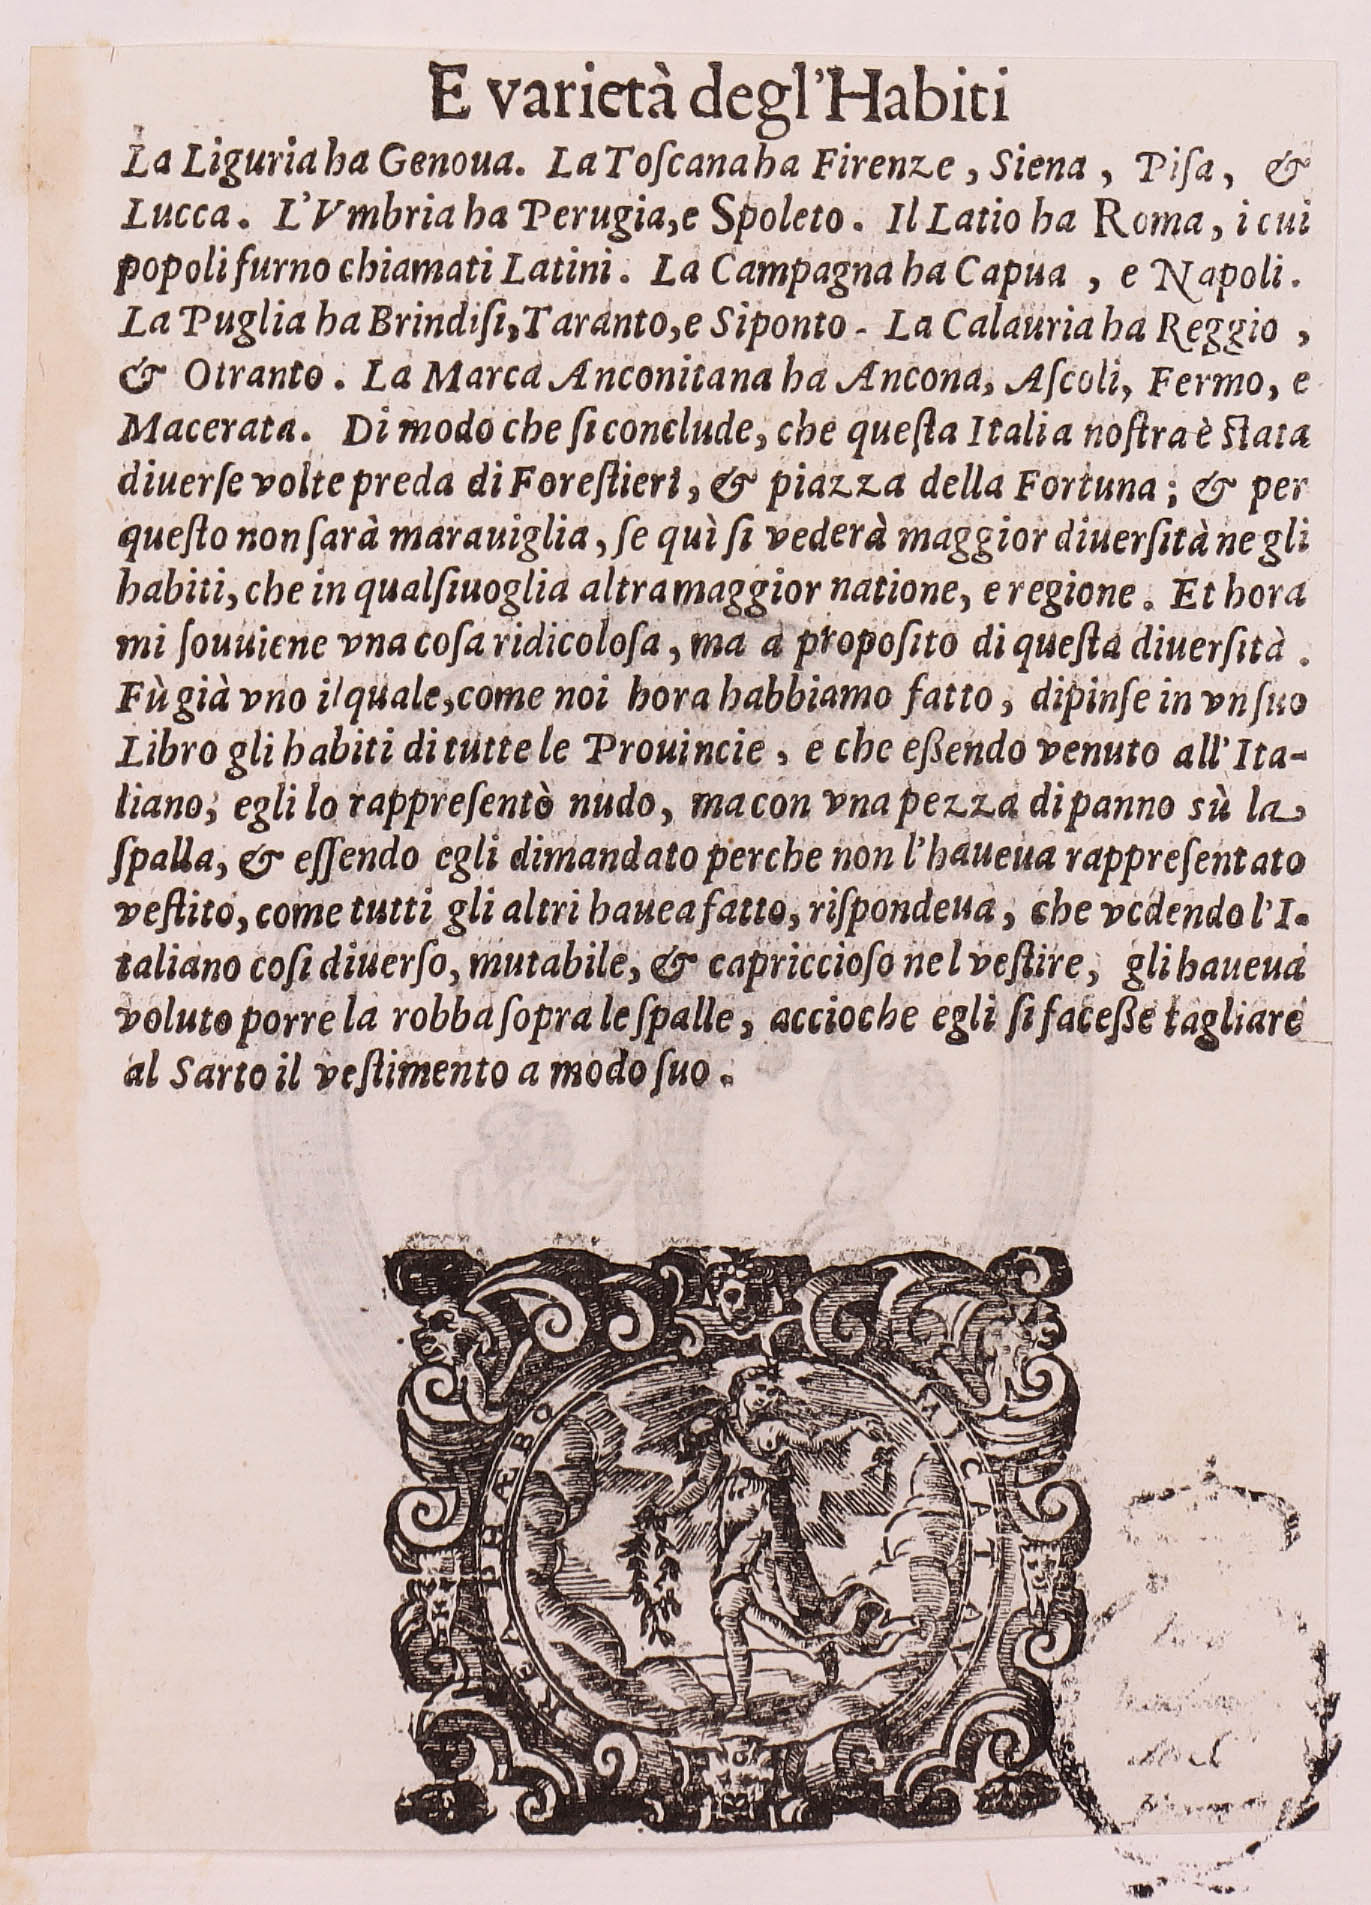 E varietà degl'Habiti
La Liguria ha Genoua. La Toſcana ha Firenze, Siena, Piſa, &
Lucca. L'Vmbria ha Perugia, e Spoleto. Il Latio ha Roma, i cui
popoli furno chiamati Latini. La Campagna ha Capua, e Napoli.
La Puglia ha Brindiſi, Taranto, e Siponto. La Calauria ha Reggio,
& Otranto. La Marca Anconitana ha Ancona, Aſcoli, Fermo, e
Macerata. Di modo che ſi conclude, che queſta Italia noſtra è ſtata
diuerſe volte preda di Foreſtieri, & piazza della Fortuna; & per
queſto non ſarà marauiglia, ſe quì ſi vederà maggior diuerſità ne gli
habiti, che in qualſiuoglia altra maggior natione, e regione. Et hora
mi ſouuiene vna coſa ridicoloſa, ma a propoſito di queſta diuerſità.
Fù già vno il quale, come noi hora habbiamo fatto, dipinſe in vn ſuo
Libro gli habiti di tutte le Prouincie, e che eßendo venuto all'Ita-
liano; egli lo rappreſentò nudo, ma con vna pezza di panno sù la
ſpalla, & eſſendo egli dimandato perche non l'haueua rappreſentato
veſtito, come tutti gli altri hauea fatto, riſpondeua, che vedendo l'I-
taliano coſi diuerſo, mutabile, & capriccioſo nel veſtire, gli haueua
voluto porre la robba ſopra le ſpalle, accioche egli ſi faceße tagliare
al Sarto il veſtimento a modo ſuo.